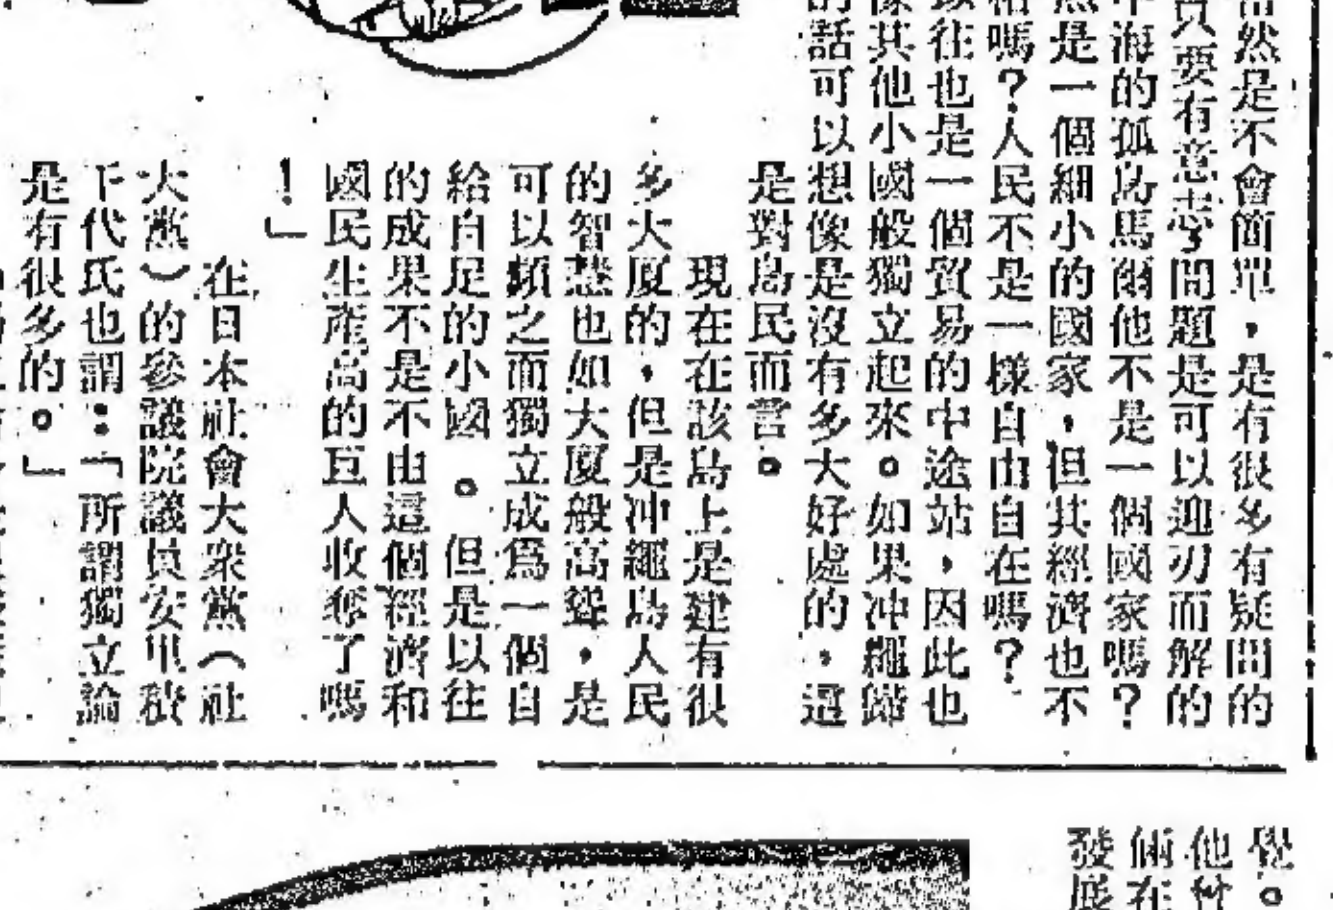 當然是不會簡單，是有很多有疑問的
只要有意志學問題是可以迎刃而解的
中海的孤島馬爾他不是一個國家嗎？
然是一個細小的國家，但其經濟也不
給嗎？人民不是一樣自由自在嗎？
以往也是一個貿易的中途站，因此也
像其他小國般獨立起來。如果沖繩歸
的話可以想像是沒有多大好處的，這
是對島民而言。
現在在該島上是建有很
多大厦的，但是沖繩島人民
的智慧也如大厦般高聳，是
可以頻之而獨立成爲一個自
給自足的小國。但是以往
的成果不是不由這個經濟和
國民生產高的巨人收奪了嗎
！」
在日本社會大衆黨（社
大黨）的參議院議員安里積
千代氏也謂：「所謂獨立論
是有很多的。」
覺。
他
倆在
發展